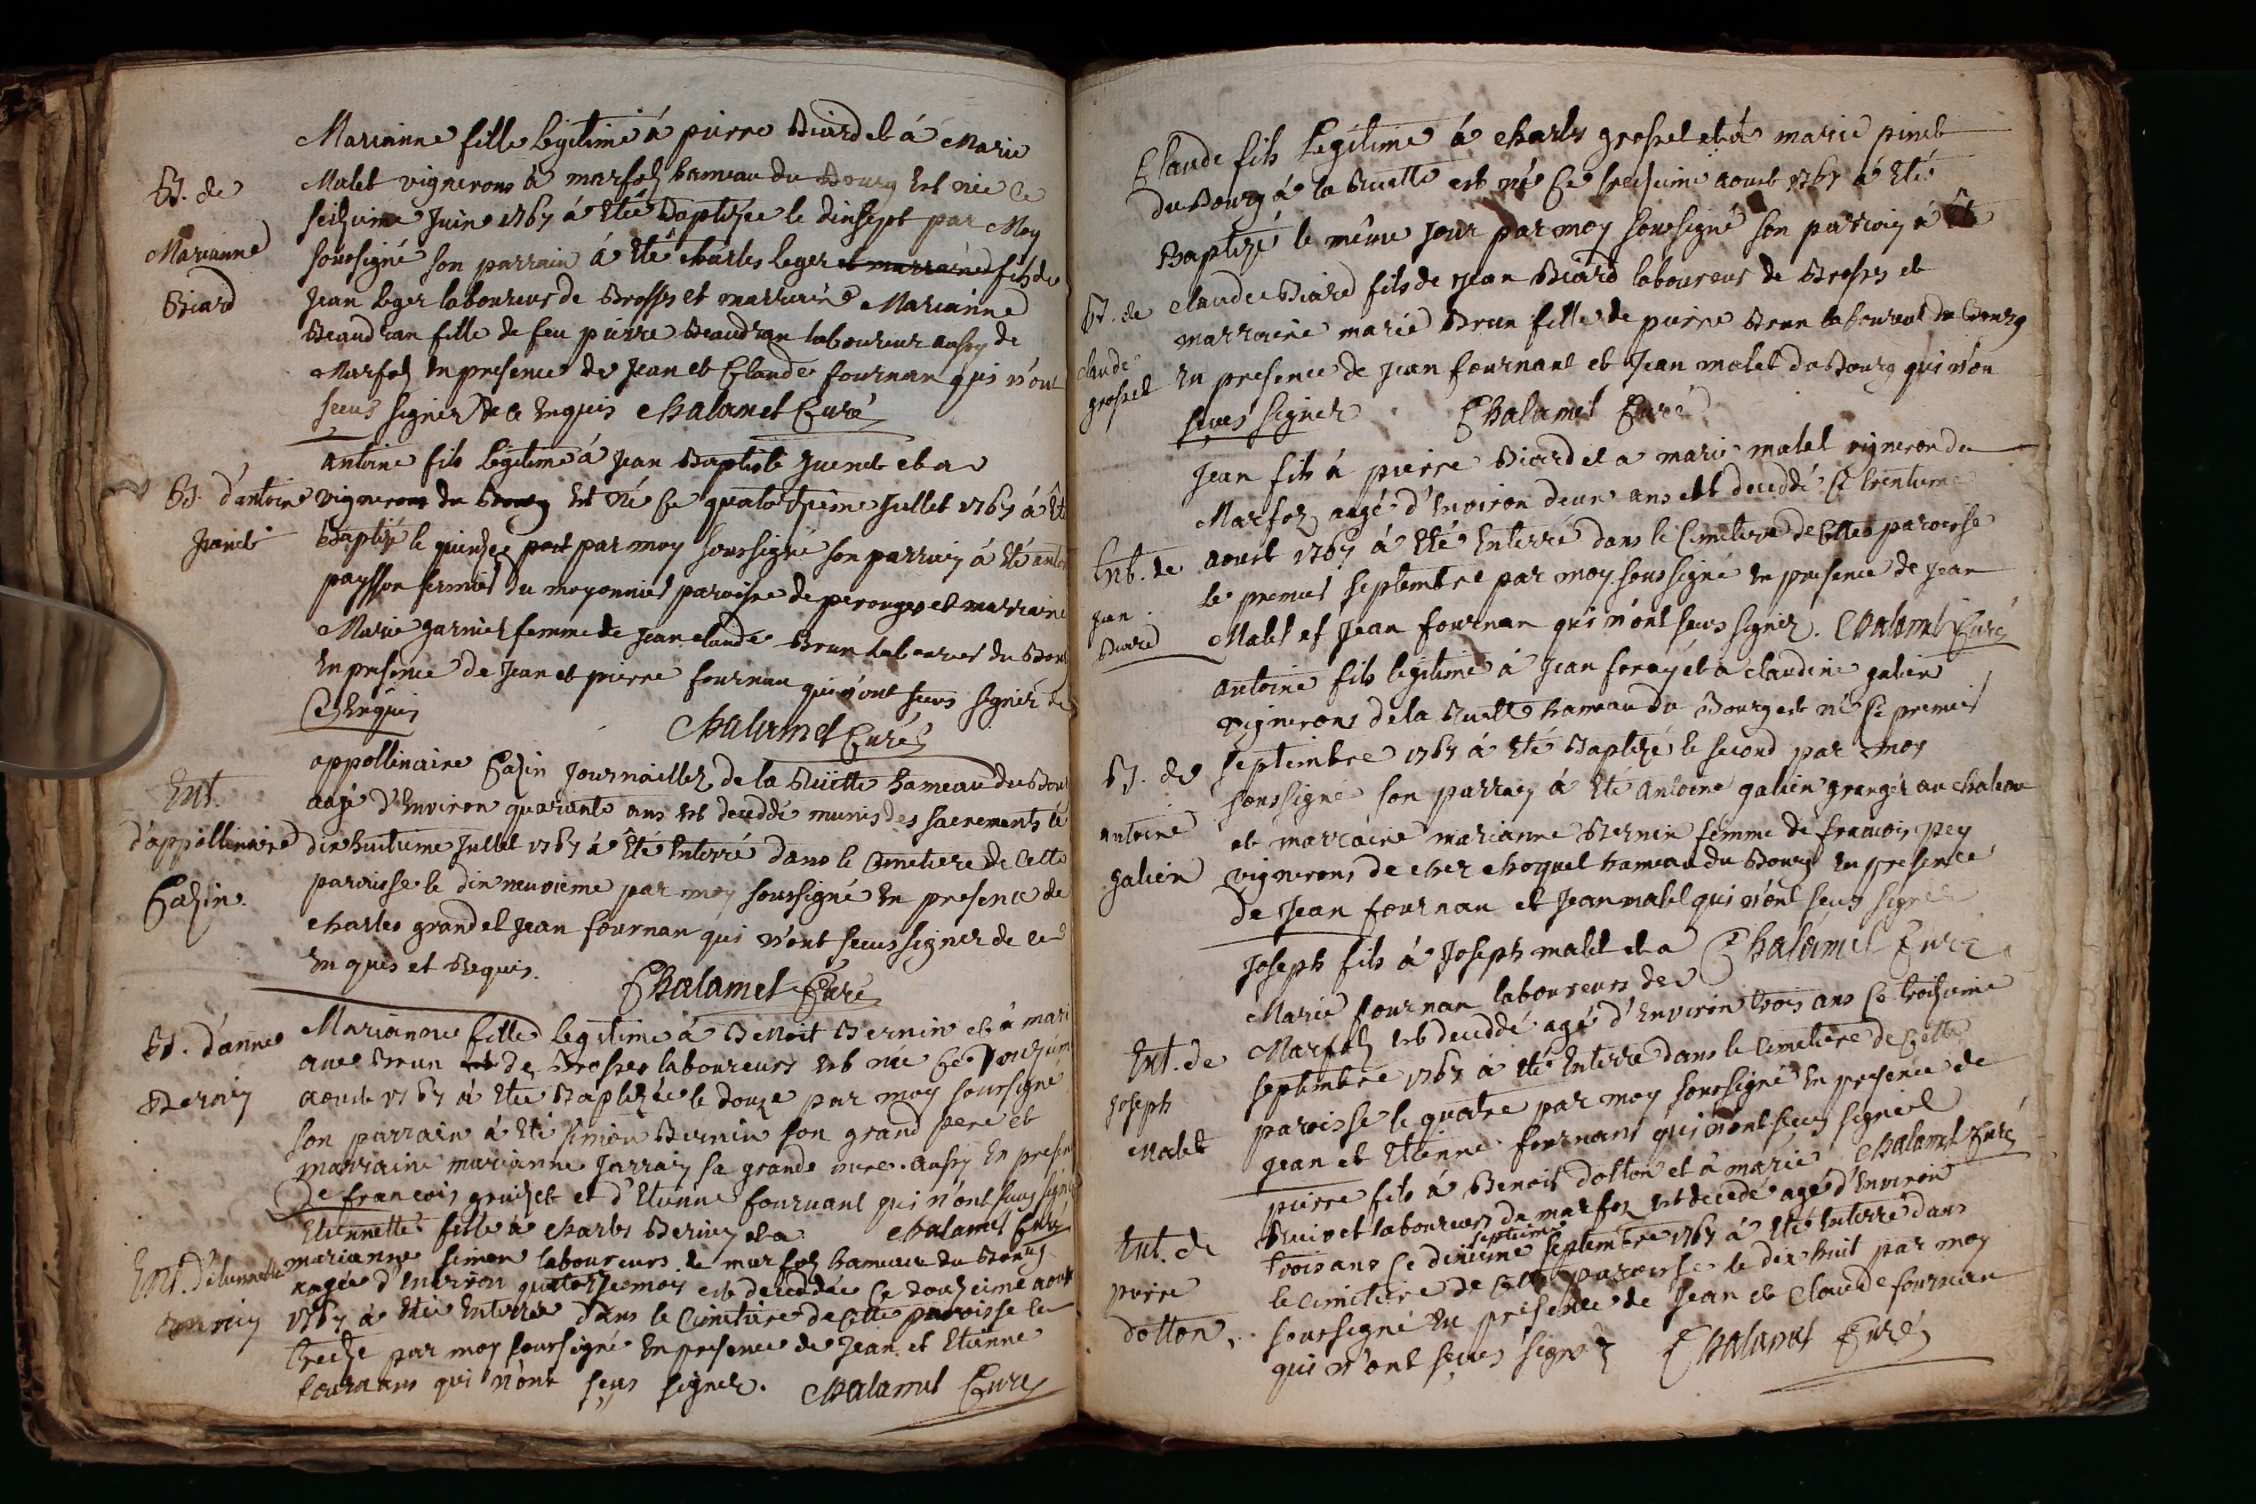 Marianne fille legitime á pierre Biard et á Marie
Bt. de
Malet vignerons á marfoz hameau du Bourg est née le
seiziéme Juin 1767 á Eté Baptizée le dixsept par Moy
Marianne
soussigné son parrain á Eté charles leger et marraine fils de
Biard
Jean leger laboureur de Brosses et marraine Marianne
Beaudran fille de feu pierre Beaudran laboureur aussy de
Marfoz en presence de Jean et Claude fournan qui n'ont
sceus signer de ce enquis Chalamel Curé
antoine fils legitime á Jean Baptiste et a
Bt. d'antoine
vignerons du Bourg est né Ce quatorzieme Juillet 1767 á Eté
Baptizé le quinze par moy soussigné son parrain á Eté
paysson fermier du moyonnier paroisse de perouges et marraine
Marie garnier femme de Jean claude Brun laboureur du Bour
En presence de Jean et pierre fournan qui n'ont sceus signer de
Ce Enquis Chalamel Curé
appollinaire Cazin Journaillez de la Ruëtte hameau du Bour
Ent.
agé d'Environ quarante ans est deceddé munis des sacrements le
d'appollinaire
dix huitieme Jullet 1767 á Eté Enterré dans le Cimetiere de Cette
paroisse le dix neuvieme par moy soussigné En presence de
Cazin.
charles grand et Jean fournan qui n'ont sceus signer de ce
Enquis et Requis. Chalamel Curé
Marianne fille legitime á Benoit Bernin et á mari
Bt. d'anne
ane Brun de Brosses laboureurs est née Ce
aoust 1767 á Etée Baptizée le douze par moy soussigné
Bernin
son parrain á Eté simon Bernin son grand pere et
marraine marianne Jarrain sa grande mere aussy En presen
De francois et d'Etienne fournant qui n'ont sceus signe
Etiennette fille á charles Bernin et a Chalamel Curé
Ent. d'Etiennette
marianne simon laboureurs de marfoz hameau du Bourg
Bernin
aagée d'Environ quatorze mois est deceddée Ce douzieme aout
1767 á Etée Enterrée dans le Cimetiere de Cette paroisse le
treize par moy soussigné En presence de Jean et Etienne
fournans qui n'ont sceus signer. Chalamel Curé
Claude fils Legitime á charles grossel et á marie pinet
du Bourg á la Ruette est né Ce treizieme aoust 1767 á Eté
Baptizé le même Jour par moy soussigné son parrain á Eté
Bt. de
claude Biard fils de Jean Biard laboureur de Brosses et
claude
marraine marie Brun fille de pierre Brun laboureur du Bourg
grossel
En presence de Jean fournant et Jean malet du Bourg qui n'on
sceus signer Chalamel Curé
Jean fils á pierre Biard et a marie malet vigneron du
Marfoz aagé d'Environ deux ans est deceddé Ce trentieme
Ent. de
aoust 1767 á Eté Enterré dans le Cimetiere de Cette paroisse
Jean
le premier septembre par moy soussigné En presence de Jean
Biard
Malet et Jean fournan qui n'ont sceus signer. Chalamel Curé
antoine fils legitime á Jean foray et a claudine galien
vignerons de la Ruette hameau du Bourg est né Ce premier
Bt. de
septembre 1767 á Eté Baptizé le second par moy
soussigné son parrain á Eté antoine galien granger au
antoine
et marraine marianne Bernin femme de francois pey
galien
vignerons de chez choquet hameau du Bourg En presence
de Jean fournan et Jean malet qui n'ont sceus signer
Joseph fils á Joseph malet et a Chalamel Curé
Marie fournan laboureurs de
Ent. de
Marfoz est deceddé agé d'Environ trois ans Ce troizieme
Joseph
septembre 1767 á Eté Enterré dans le Cimetiere de Cette
Malet
paroisse le quatre par moy soussigné En presence de
Jean et Etienne fournans qui n'ont sceus signer
pierre fils á Benoit dotton et á marie Chalamel Curé
Ent. de
laboureurs de marfoz est decedé agé d'Environ
septieme
trois ans Ce septembre 1767 á Eté Enterré dans
pierre
le Cimetiere de Cette paroisse le dix huit par moy
dotton.
soussigné En presence de Jean et Claude fournan
qui n'ont sceus signer Chalamel Curé